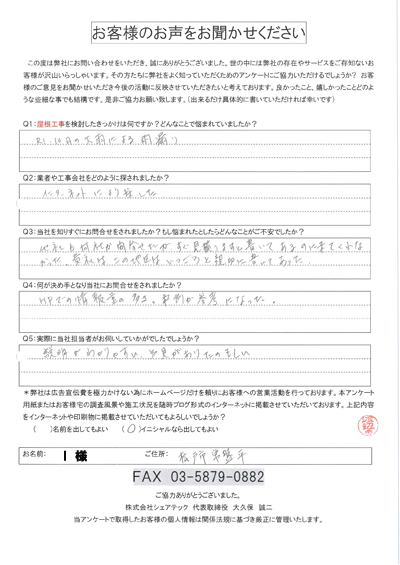 お客様のお声をお聞かせください
この度は弊社にお問い合わせをいただき、誠にありがとうございました。世の中には弊社の存在やサービスをご存知ないお
客様が沢山いらっしゃいます。その方たちに弊社をよく知っていただくためのアンケートにご協力いただけるでしょうか？ お客
様のご意見をお聞かせいただき今後の活動に反映させていただきたいと考えております。良かったこと、嬉しかったことどのよ
うな些細な事でも結構です。是非ご協力お願い致します。（出来るだけ具体的に書いていただければ幸いです）
Q1：屋根工事を検討したきっかけは何ですか？どんなことで悩まれていましたか？
R1.10月の大雨による雨漏り
Q2：業者や工事会社をどのように探されましたか？
インターネットにより探した
Q3：当社を知りすぐにお問合せをされましたか？もし悩まれたとしたらどんなことがご不安でしたか？
他社も何社か問合せたが、すぐ見積りますと書いてあるのに来てくれな
かった。貴社はこの地区はいつごろと親切に書いてあった。
Q4：何が決め手となり当社にお問合せをされましたか？
HPでの情報量の多さ。事例が参考になった。
Q5：実際に当社担当者がお伺いしていかがでしたでしょうか？
説明がわかりやすい
＊弊社は広告宣伝費を極力かけない為にホームページだけを頼りにお客様への営業活動を行っております。本アンケート
用紙またはお客様宅の調査風景や施工状況を随時ブログ形式のインターネットに掲載させていただいております。上記内容
をインターネットや印刷物に掲載させていただいてもよろしいでしょうか？
（ ）名前を出してもよい （○）イニシャルなら出してもよい
お名前： I 様 ご住所：
FAX 03-5879-0882
ご協力ありがとうございました。
株式会社シェアテック 代表取締役 大久保 誠二
当アンケートで取得したお客様の個人情報は関係法規に基づき厳正に管理いたします。